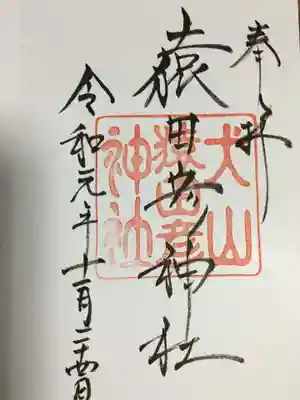 奉拝
猿田彦神社
犬山
猿田彦
神社
令和元年十一月二十四日